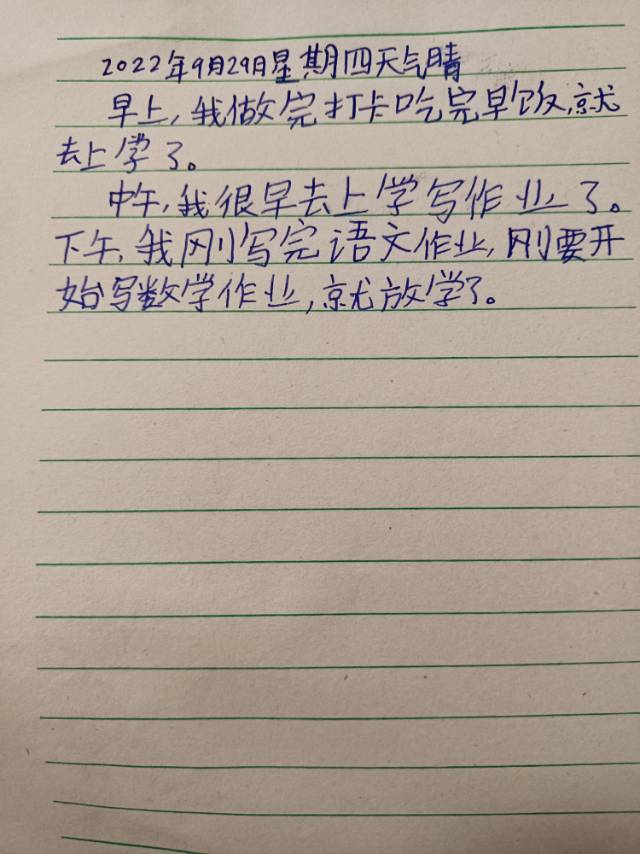 2022年9月29日星期四天气晴
早上,我做完打卡吃完早饭,就
去上学了。
中午,我很早去上学写作业了。
下午,我刚写完语文作业,刚要开
始写数学作业,就放学了。